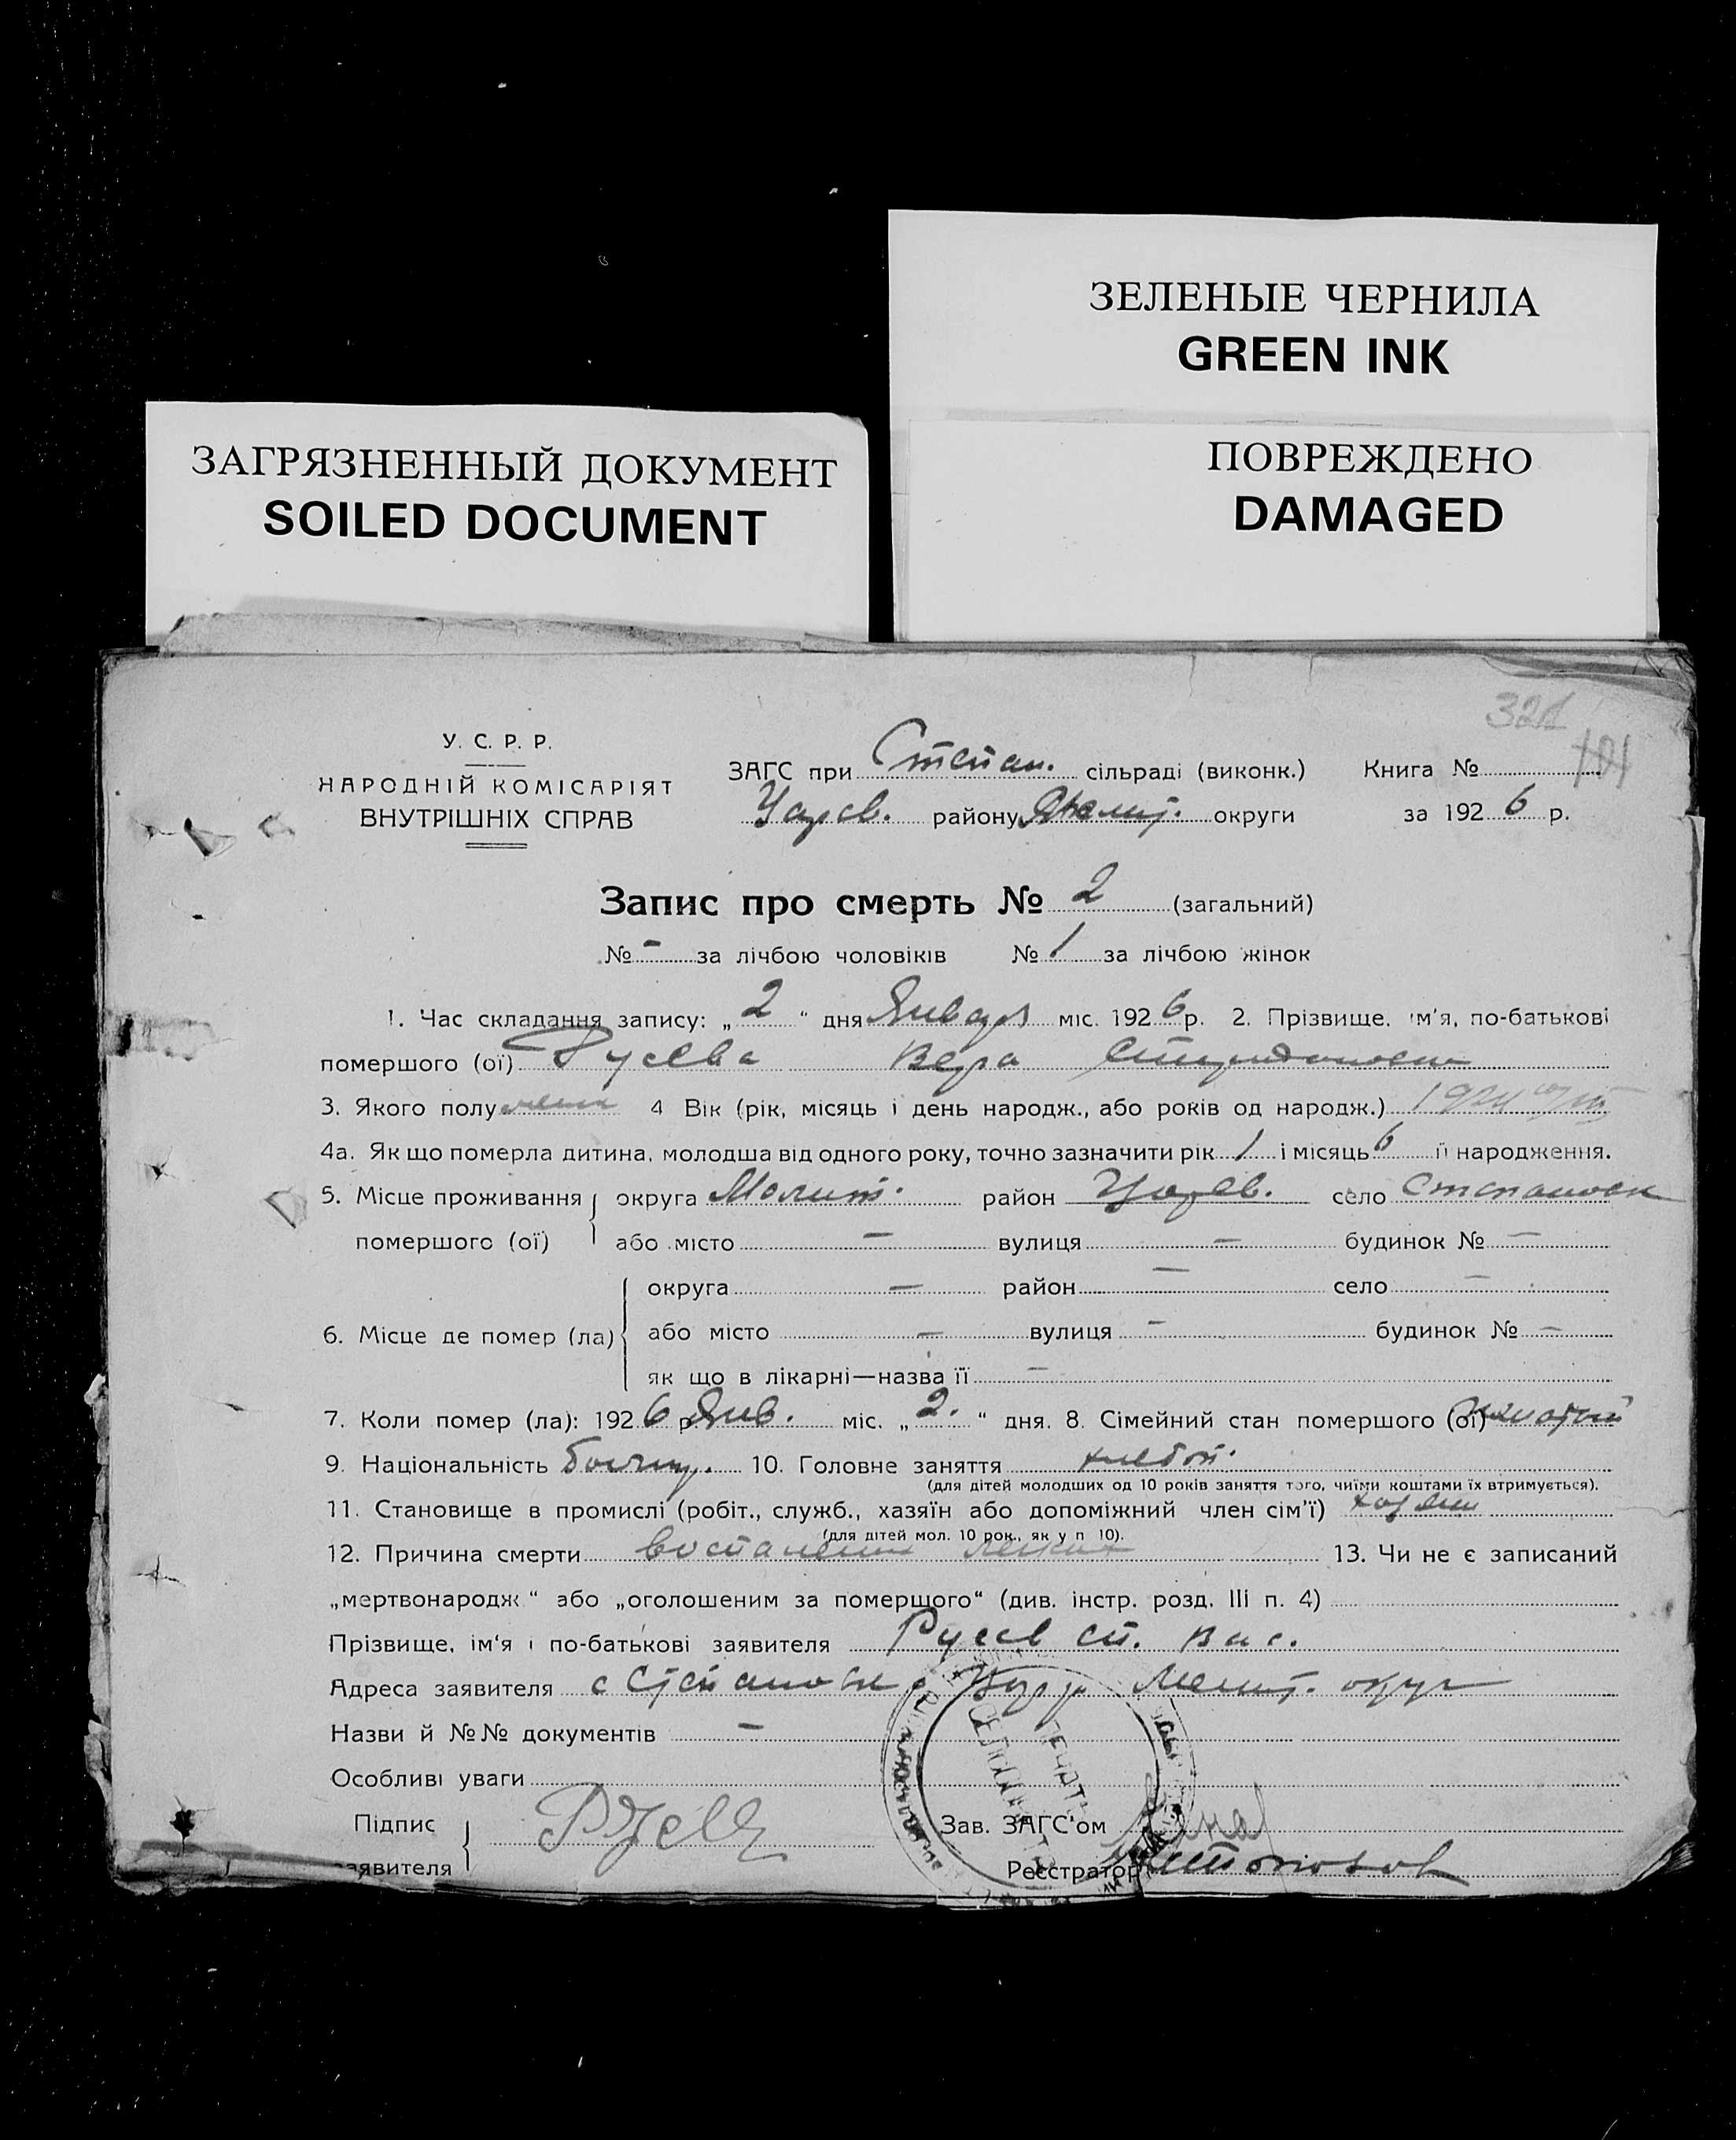 ЗЕЛЕНЫЕ ЧЕРНИЛА
GREEN INK
ЗАГРЯЗНЕННЫЙ ДОКУМЕНТ
SOILED DOCUMENT
ПОВРЕЖДЕНО
DAMAGED
321
У. С. Р. Р.
НАРОДНІЙ КОМІСАРІЯТ
ВНУТРІШНІХ СПРАВ
ЗАГС при Степан. сільраді (виконк.) Книга №
Царев. району округи за 1926 р.
Запис про смерть № 2 (загальний)
№ - за лічбою чоловіків № 1 за лічбою жінок
1. Час складання запису: „2“ дня Января міс. 1926 р. 2. Прізвище, ім'я, по-батькові
помершого (ої) Русева Вера
3. Якого полу 4 Вік (рік, місяць і день народж., або років од народж.)
4а. Як що померла дитина, молодша від одного року, точно зазначити рік 1 і місяць 6 її народження.
5. Місце проживання округа Мелит. район Царев. село Степановк
помершого (ої) або місто — вулиця — будинок № —
округа — район — село —
6. Місце де помер (ла) або місто — вулиця — будинок № —
як що в лікарні—назва її —
7. Коли помер (ла): 1926 р. Янв. міс. „2.“ дня. 8. Сімейний стан помершого (ої)
9. Національність Болгар. 10. Головне заняття хлебоп.
(для дітей молодших од 10 років заняття того, чиїми коштами їх втримується).
11. Становище в промислі (робіт., служб., хазяїн або допоміжний член сім'ї) хозяин
(для дітей мол. 10 рок., як у п 10).
12. Причина смерти воспаление легких 13. Чи не є записаний
„мертвонародж.“ або „оголошеним за померщого“ (див. інстр. розд. III п. 4)
Прізвище, ім'я і по-батькові заявителя Русев Сп. Вас.
Адреса заявителя с Степановк Мелит. округ
Назви й №№ документів —
Особливі уваги
Підпис
заявителя Русев
Зав. ЗАГС'ом
Реєстратор
ПЕЧАТЬ